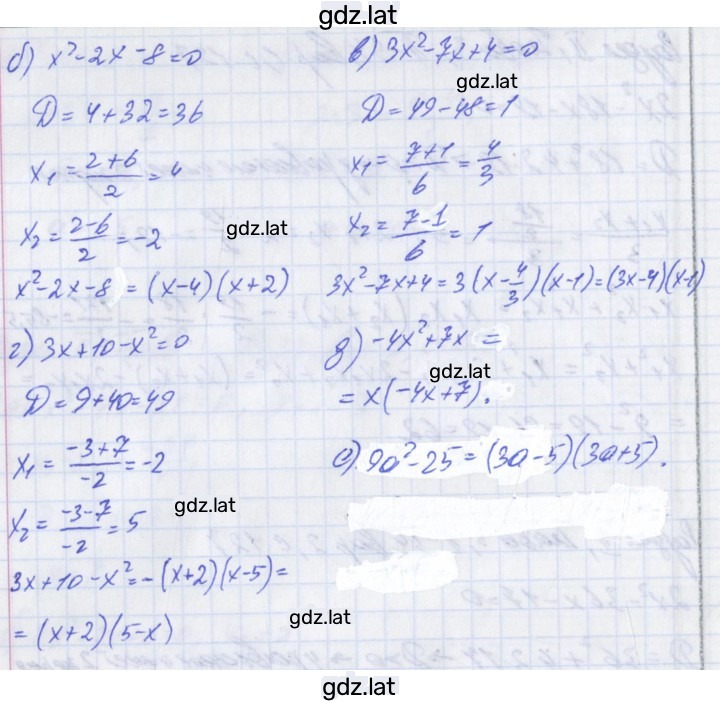 gdz.lat
б) x²-2x-8=0
D=4+32=36
x₁=(2+6)/2=4
gdz.lat
x₂=(2-6)/2=-2
x²-2x-8=(x-4)(x+2)
в) 3x²-7x+4=0
gdz.lat
D=49-48=1
x₁=(7+1)/6=4/3
x₂=(7-1)/6=1
3x²-7x+4=3(x-4/3)(x-1)=(3x-4)(x-1)
г) 3x+10-x²=0
D=9+40=49
x₁=(-3+7)/-2=-2
gdz.lat
x₂=(-3-7)/-2=5
3x+10-x²=-(x+2)(x-5)=
=(x+2)(5-x)
д) -4x²+7x=
gdz.lat
=x(-4x+7).
е) 9a²-25=(3a-5)(3a+5).
gdz.lat
gdz.lat